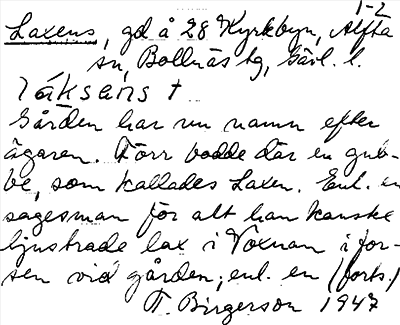 1-2
Laxens, gd å 28 Kyrkbyn, Alfta
sn, Bollnäs tg, Gävl. l.
Gården har nu namn efter
ägaren. Förr bodde där en gub-
be, som kallades Laxen. Enl. en
sagesman för att han kanske
ljustrade lax i Voxnan i for-
sen vid gården; enl. en (forts.)
T. Birgerson 1947